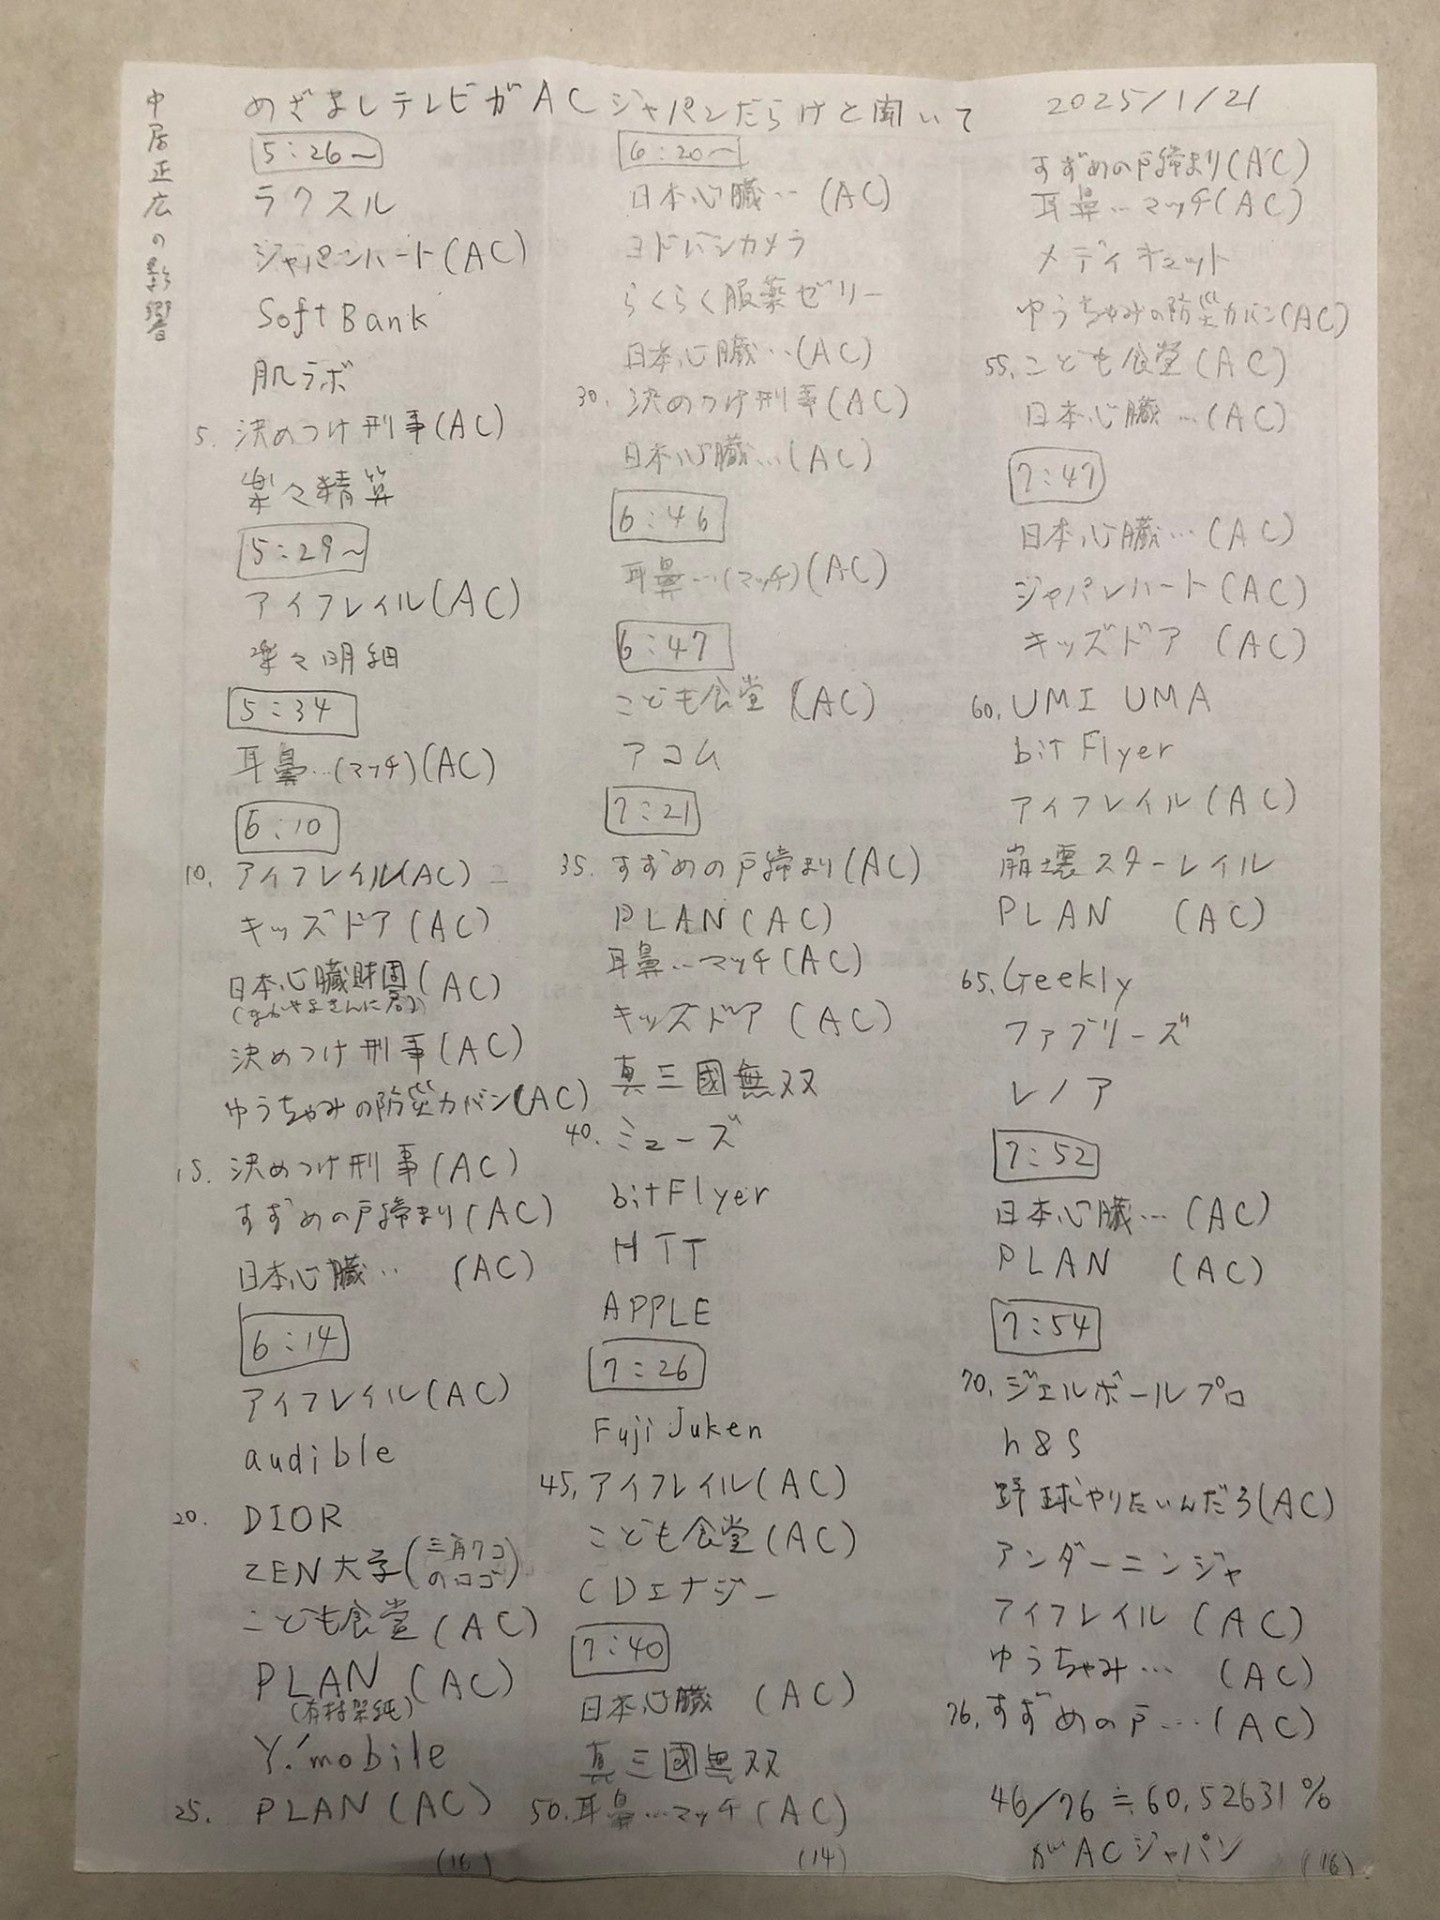 中居正広の影響
めざましテレビがACジャパンだらけと聞いて
2025/1/21
5:26〜
ラクスル
ジャパンハート(AC)
SoftBank
肌ラボ
5. 決めつけ刑事(AC)
楽々精算
5:29〜
アイフレイル(AC)
楽々明細
5:34
耳鼻…(マッチ)(AC)
6:10
10. アイフレイル(AC)
キッズドア(AC)
日本心臓財団(AC)
(なかやまきんに君)
決めつけ刑事(AC)
ゆうちゃみの防災カバン(AC)
15. 決めつけ刑事(AC)
すずめの戸締まり(AC)
日本心臓… (AC)
6:14
アイフレイル(AC)
audible
20. DIOR
ZEN大学(三角タコのロゴ)
こども食堂(AC)
PLAN (AC)
(有村架純)
Y!mobile
25. PLAN(AC)
(16)
6:20〜
日本心臓…(AC)
ヨドバシカメラ
らくらく服薬ゼリー
日本心臓…(AC)
30. 決めつけ刑事(AC)
日本心臓…(AC)
6:46
耳鼻…(マッチ)(AC)
6:47
こども食堂(AC)
アコム
7:21
35. すずめの戸締まり(AC)
PLAN(AC)
耳鼻…マッチ(AC)
キッズドア(AC)
真三國無双
40. ミューズ
bitFlyer
HTT
APPLE
7:26
Fuji Juken
45. アイフレイル(AC)
こども食堂(AC)
CDエナジー
7:40
日本心臓 (AC)
真三國無双
50. 耳鼻…マッチ(AC)
(14)
すずめの戸締まり(AC)
耳鼻…マッチ(AC)
メディキュット
ゆうちゃみの防災カバン(AC)
55. こども食堂(AC)
日本心臓…(AC)
7:47
日本心臓…(AC)
ジャパンハート(AC)
キッズドア(AC)
60. UMI UMA
bitFlyer
アイフレイル(AC)
崩壊スターレイル
PLAN (AC)
65. Geekly
ファブリーズ
レノア
7:52
日本心臓…(AC)
PLAN (AC)
7:54
70. ジェルボールプロ
h&s
野球やりたいんだろ(AC)
アンダーニンジャ
アイフレイル(AC)
ゆうちゃみ… (AC)
76. すずめの戸…(AC)
46/76≒60.52631%
がACジャパン
(16)